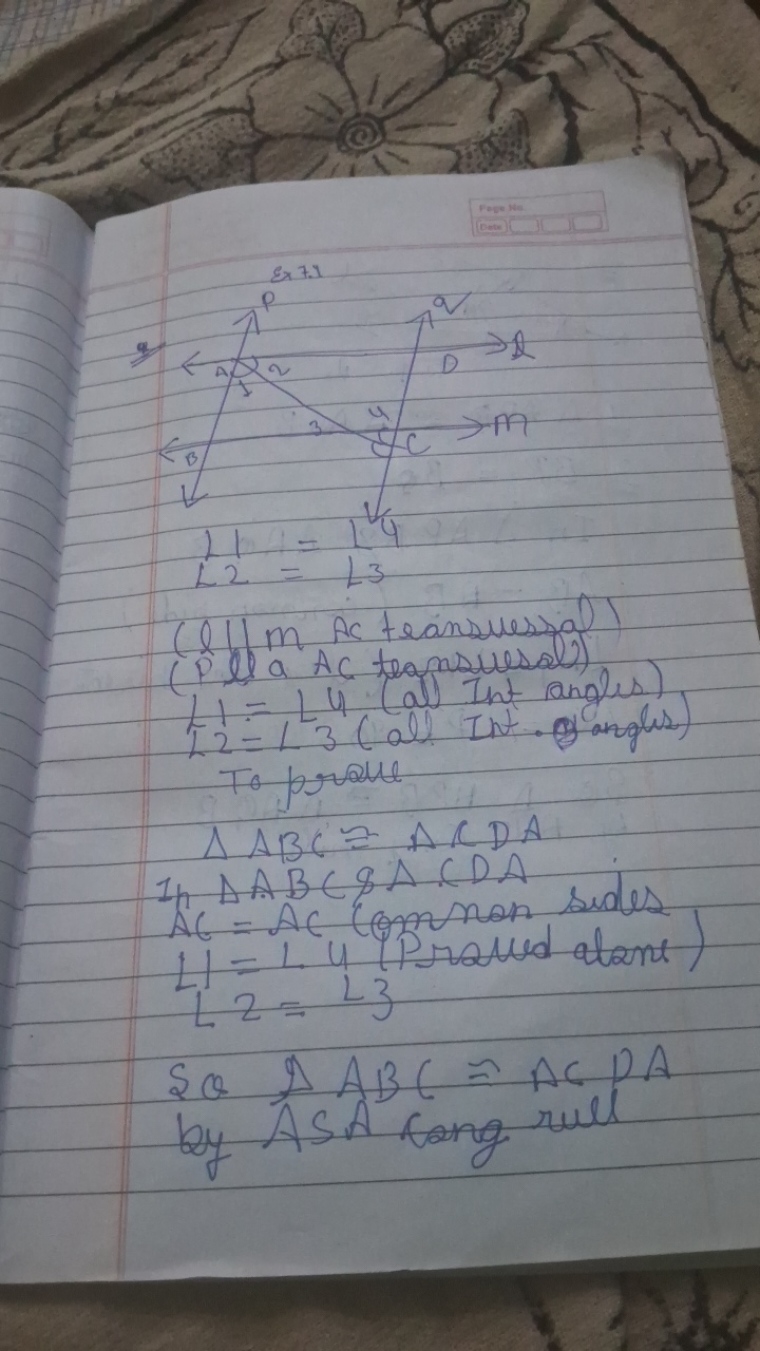 Page No.
Date
Ex 7.1
P
q
A
2
D
l
1
4
3
m
B
C
L1 = L4
L2 = L3
(l || m AC transversal)
(P || q AC transversal)
L1 = L4 (all Int angles)
L2 = L3 (all Int. angles)
To prove
Δ ABC ≅ ΔCDA
In ΔABC & ΔCDA
AC = AC Common sides
L1 = L4 (Proved above)
L2 = L3
So Δ ABC ≅ ΔCDA
by ASA Cong rull